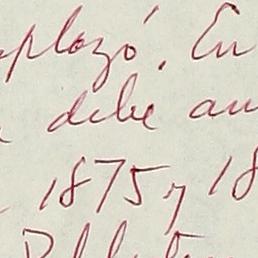 plazó. En
debe au
1875 y 18